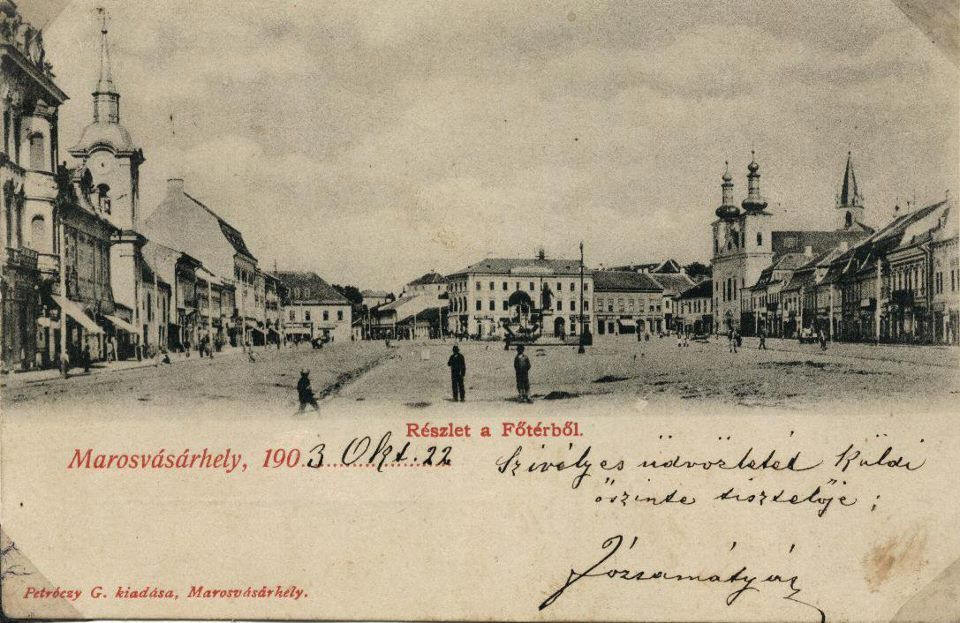 Részlet a Főtérből.
Marosvásárhely, 1903 Okt. 22
Szivélyes üdvözletét Küldi
őszinte tisztelője;
Józsamátyás
Petróczy G. kiadása, Marosvásárhely.